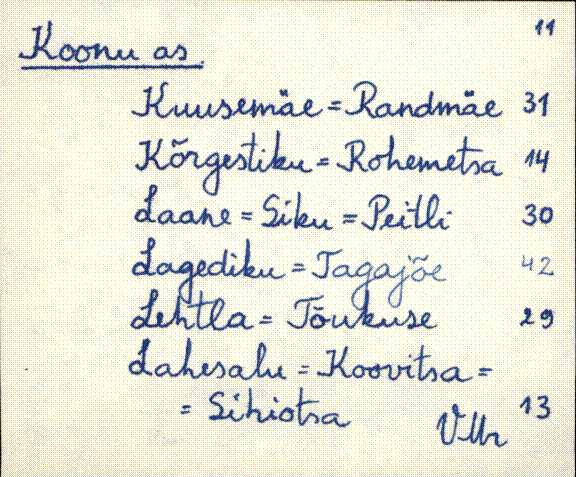 11
Koonu as.
Kuusemäe = Randmäe 31
Kõrgestiku = Rohemetsa 14
Laane = Siku = Peitli 30
Lagediku = Tagajõe 42
Lehtla = Tõukuse 29
Lahesalu = Koovitsa =
= Sihiotsa 13
VMr